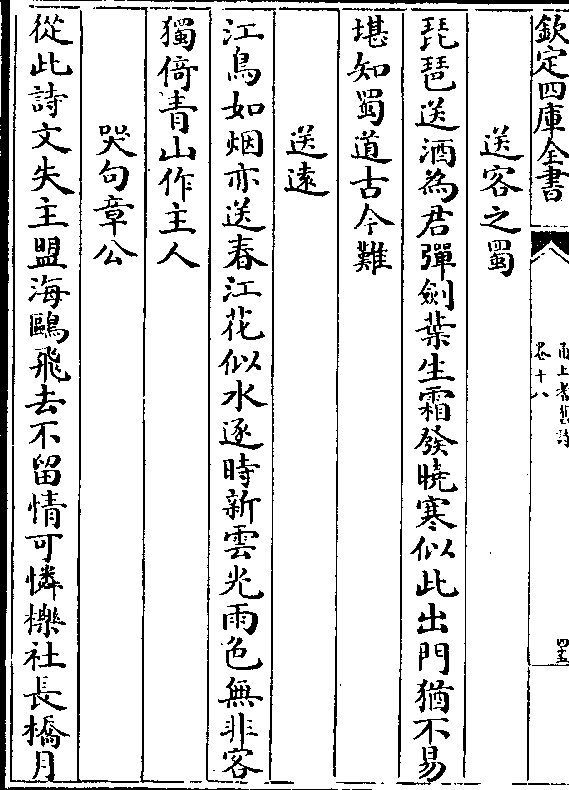 欽定四庫全書
甬上耆舊詩
卷十八
送客之蜀
琵琶送酒為君彈劍葉生霜發曉寒似此出門猶不易
堪知蜀道古今難
送遠
江鳥如烟亦送春江花似水逐時新雲光雨色無非客
獨倚青山作主人
哭句章公
從此詩文失主盟海鷗飛去不留情可憐櫟社長橋月